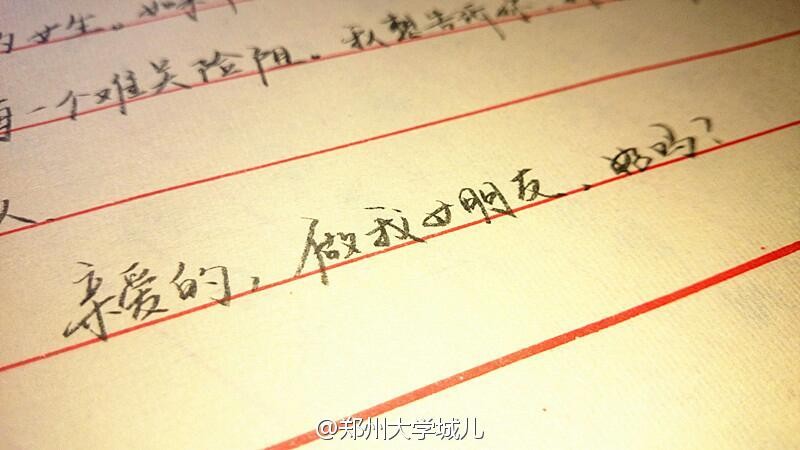 女生。如果
一个难关险阻。我想告诉你,
人.
亲爱的,做我女朋友,好吗?
@郑州大学城儿